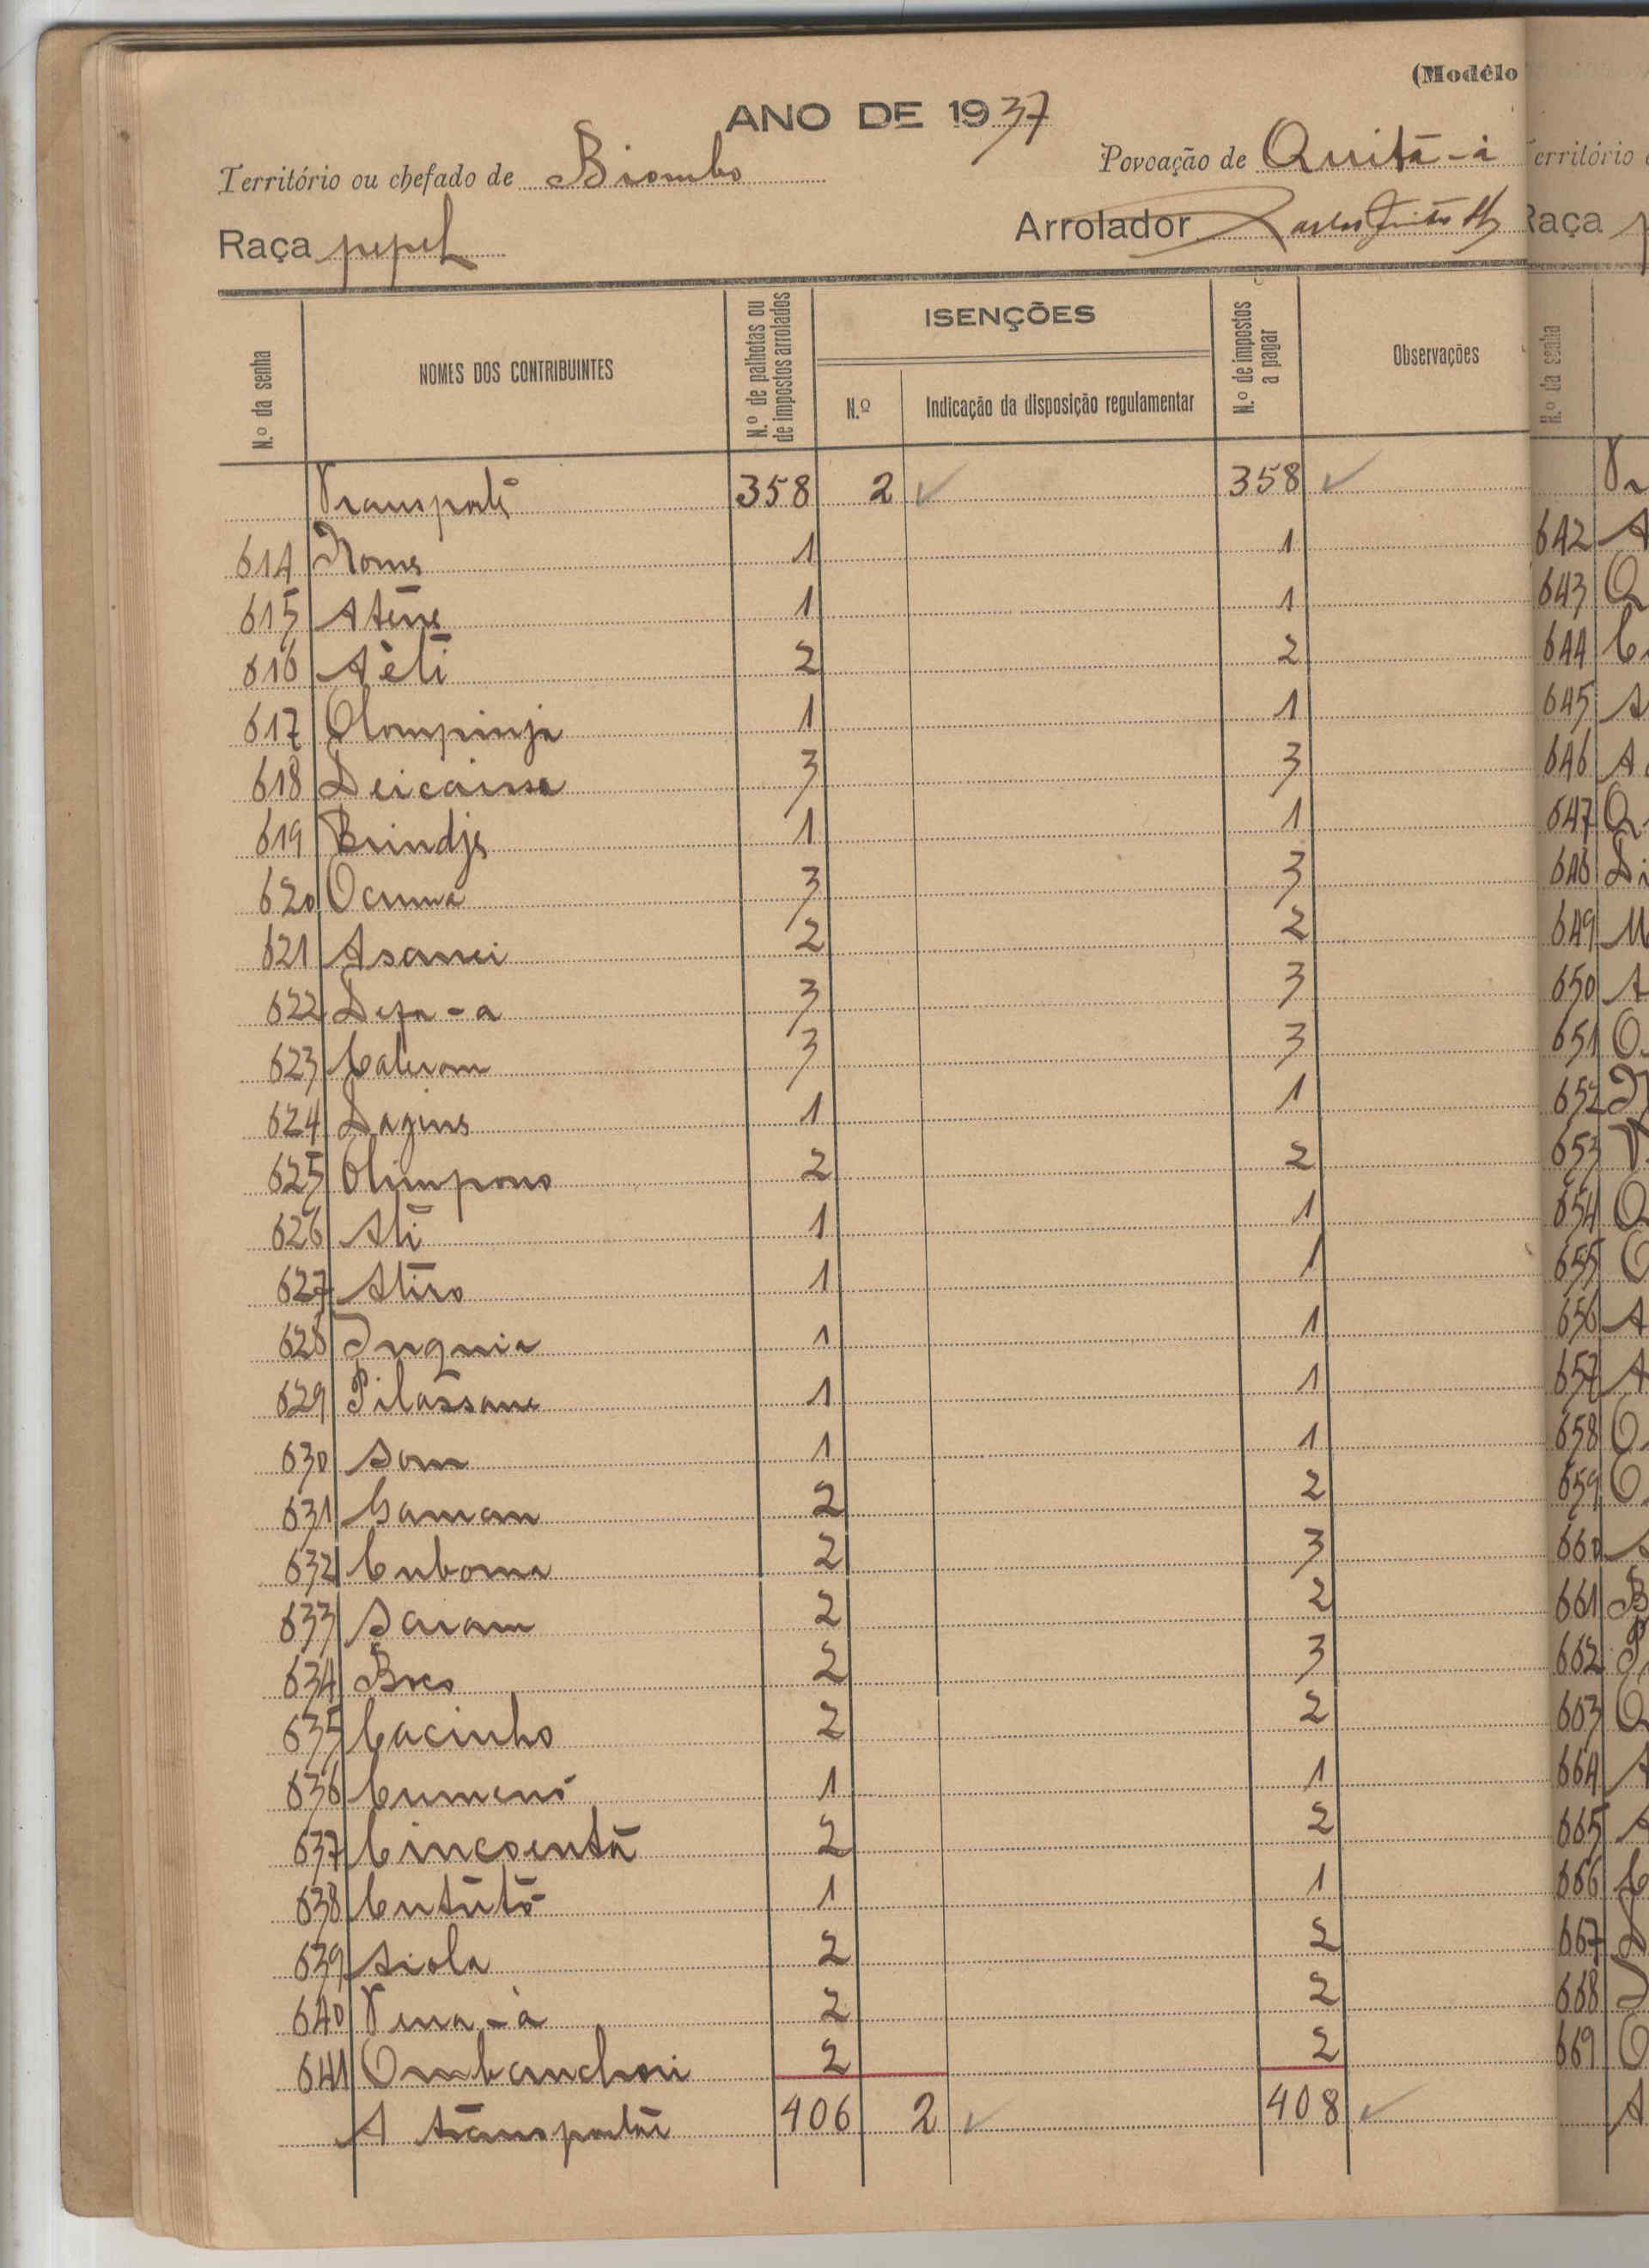 (Modêlo
ANO DE 1937
Território ou chefado de Biombo
Povoação de Quitá-á
Raça pepel
Arrolador
N.º da senha
NOMES DOS CONTRIBUINTES
N.º de palhotas ou de impostos arrolados
ISENÇÕES
N.º
Indicação da disposição regulamentar
N.º de impostos a pagar
Observações
Transporte 358 2 ✓ 358 ✓
614 Nome 1 1
615 Aténe 1 1
616 Aèli 2 2
617 Olompinja 1 1
618 3 3
619 Brindje 1 1
620 Ocuma 3 3
621 Asanei 2 2
622 3 3
623 3 3
624 1 1
625 Olimpono 2 2
626 Ati 1 1
627 Atiro 1 1
628 Inquia 1 1
629 Pilassane 1 1
630 Som 1 1
631 2 2
632 Cuboma 2 3
633 Saram 2 2
634 2 3
635 Cacinho 2 2
636 Cumené 1 1
637 Cincoentá 2 2
638 Cututó 1 1
639 Siola 2 2
640 2 2
641 2 2
A transportar 406 2 ✓ 408 ✓
Território
Raça
N.º da senha
642
643
644
645
646
647
648
649
650
651
652
653
654
655
656
657
658
659
660
661
662
663
664
665
666
667
668
669